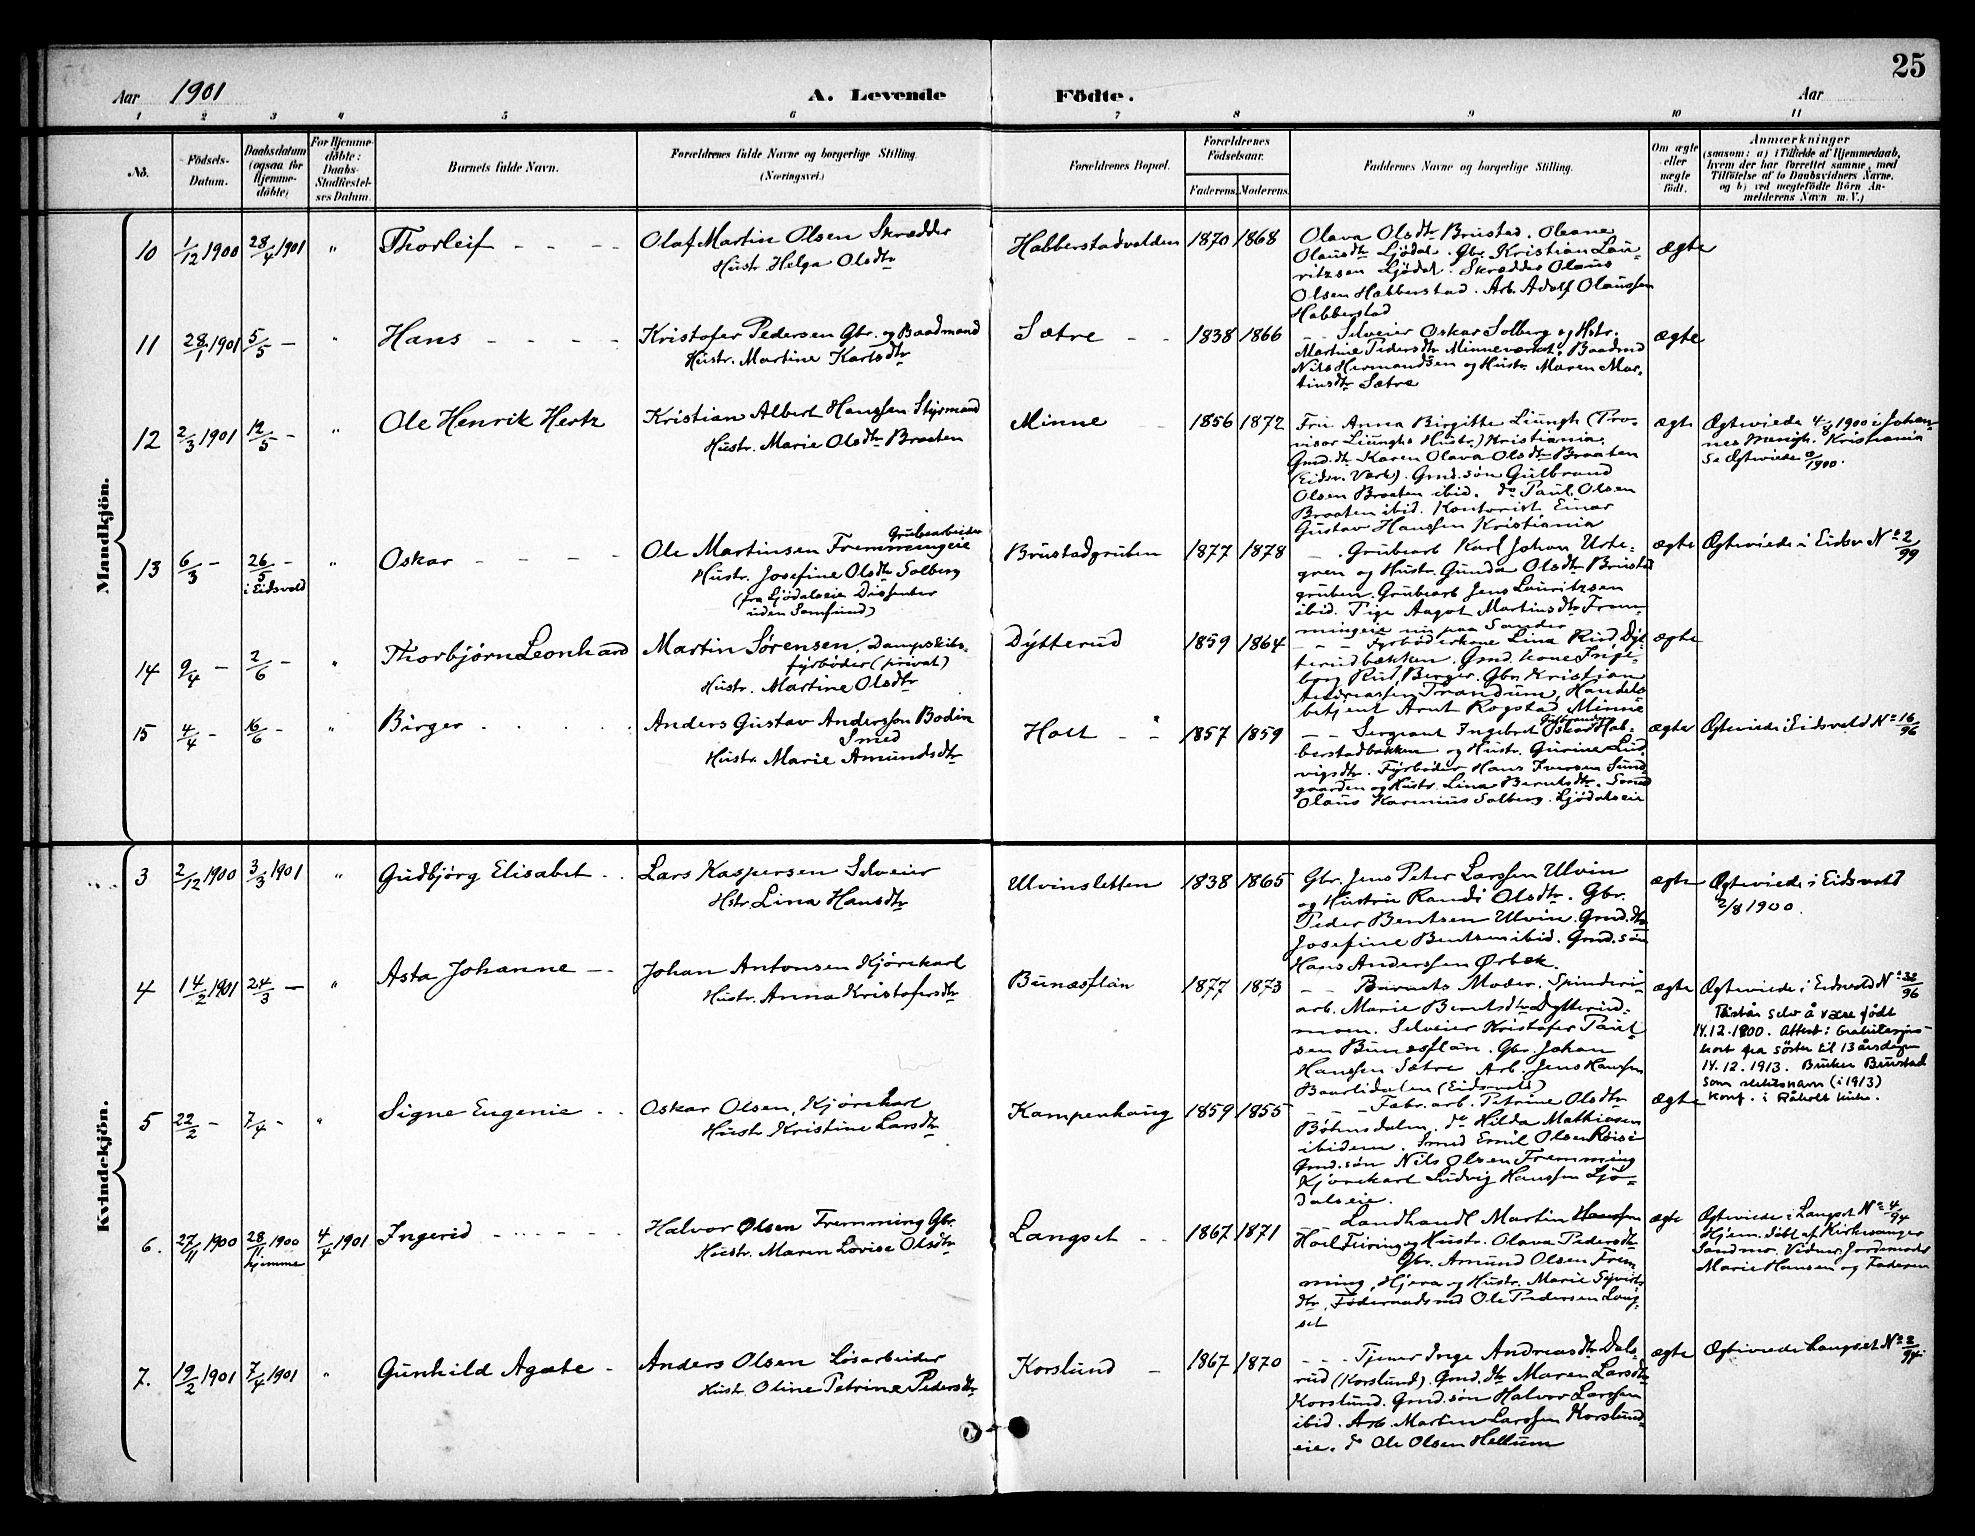 25
Aar 1901 A. Levende Födte. Aar
1 2 3 4 5 6 7 8 9 10 11
No.
Födsels-
Datum.
Daabsdatum
(ogsaa for
Hjemme-
döbte)
For Hjemme-
döbte:
Daabs-
Stadfæstel-
ses Datum.
Barnets fulde Navn.
Forældrenes fulde Navne og borgerlige Stilling.
(Næringsvei.)
Forældrenes Bopæl.
Forældrenes
Födselsaar.
Faderens. Moderens.
Faddernes Navne og borgerlige Stilling.
Om ægte
eller
uægte
födt.
Anmærkninger
(saasom: a) i Tilfælde af Hjemmedaab,
hvem der har forrettet samme, med
Tilföielse af to Daabsvidners Navne,
og b) ved uægtefödte Börn An-
melderens Navn m. V.)
Mandkjön.
10 1/12 1900 28/4 1901 " Thorleif - - - -
Olaf Martin Olsen Skrædder
Hustr. Helga Olsdtr
Habberstadvolden 1870 1868
Olava Olsdtr Brustad. Oleane
Olausdtr Ljödal. Gbr. Kristian Lau-
ritzsen Ljödal. Skrædder Olaus
Olsen Habberstad. Arb. Adolf Olaussen
Habberstad
ægte
11 28/1 1901 5/5 - " Hans - - - -
Kristofer Pedersen Gbr. og Baadmand
Hustr. Martine Karlsdtr
Sætre - - 1838 1866
- - Selveier Oskar Solberg og Hstr.
Martine Pedersdtr Minneværket. Baadmd
Nils Hermandsen og Hustr. Maren Mar-
tinsdtr Sætre
ægte
12 2/3 1901 12/5 - " Ole Henrik Hertz
Kristian Albert Hanssen Styrmand
Hustr. Marie Olsdtr Braaten
Minne - 1856 1872
Fru Anna Birgitte Liungh (Pro-
visor Liunghs Hustr.) Kristiania.
Gmd.dtr Karen Olava Olsdtr Braaten
(Eidsv. Værk). Gmd.søn Gulbrand
Olsen Braaten ibid. do Paul Olsen
Braaten ibid. Kontorist Einar
Gustav Hanssen Kristiania
ægte
Ægteviede 4/8 1900 i Johan-
nes Menigh. Kristiania
Se Ægteviede 1900.
13 6/3 - 26/5 - i Eidsvold " Oskar - - - -
Grubearbeider
Ole Martinsen Fremmingeie
Hustr. Josefine Olsdtr Solberg
(fra Ljödalseie Dissenter
uden Samfund)
Brustadgruben 1877 1878
- . Grubearb Karl Johan Urte-
gren og Hustr. Gunda Olsdtr Brustad
gruben. Grubearb Jens Lauritzsen
ibid. Pige Aagot Martinsdtr Frem-
mingeie nu paa Sander
ægte
Ægteviede i Eidsv No 2/99
14 9/4 - 2/6 - " Thorbjørn Leonhard
Martin Sørensen, Dampskibs-
fyrbøder (privat)
Hustr. Martine Olsdtr
Dytterud 1859 1864
- - Fyrbøderkone Lina Rud Dyt-
terudbækken. Gmd. kone Inge-
borg Rud, Berger. Gbr. Kristian
Andreassen Trandum, Handels-
betjent Arnt Rogstad, Minne
ægte
15 4/4 - 16/6 - " Birger - - - -
Anders Gustav Anderssøn Bodin
Smed
Hustr. Marie Amundsdtr
Holt - - 1857 1859
- - Sergeant Ingebret Oskar Hab-
berstadbakken og Hustr. Gurine Lud-
vigsdtr. Fyrbøder Hans Iversen Sund-
gaarden og Hustr. Lina Berntsdtr. Smed
Olaus Karenius Solberg. Ljödalseie
ægte
Ægteviede i Eidsvold No 16/96
Kvindekjön.
3 2/12 1900 3/3 1901 " Gudbjørg Elisabet - -
Lars Kaspersen Selveier
Hstr. Lina Hansdtr
Ulvinsletten 1838 1865
Gbr. Jens Peter Larssen Ulvin
og Hustru Randi Olsdtr. Gbr.
Peder Bentsen Ulvin. Gmd.dtr
Josefine Bentsen ibid. Gmd.søn
Hans Anderssen Ørbæk.
ægte
Ægteviede i Eidsvold
2/8 1900.
4 14/2 1901 24/3 - " Asta Johanne - -
Johan Antonsen Kjørekarl
Hustr. Anna Kristofersdtr
Bunæsflan 1877 1873
- - Barnets Moder. Spinderi-
arb. Marie Berntsdtr Dytterud-
moen. Selveier Kristofer Paul-
sen Bunæsflan. Gbr. Johan
Hanssen Sætre Arb. Jens Hanssen
Baarlidalen (Eidsvold)
ægte
Ægteviede i Eidsvold No 32/96
Påstår selv å være født
14.12.1900. Attest: Gratulasjons-
kort fra søster til 13 årsdagen
14.12.1913. Bruker Brustad
som slektsnavn (i 1913)
Konf. i Råholt kirke.
5 22/2 - 7/4 - " Signe Eugenie - -
Oskar Olsen, Kjørekarl
Hustr. Kristine Larsdtr
Kampenhaug 1859 1855
- - - Fabr.arb. Petrine Olsdtr
Böhnsdalen. do Hilda Mathiesen
ibidem. Smed Emil Olsen Røise
Gmd.søn Nils Olsen Fremming
Kjørekarl Ludvig Hanssen Ljö-
dalseie.
ægte
6. 27/11 1900 28/11 1900 hjemme 4/4 1901 Ingerid - - - -
Halvor Olsen Fremming Gbr.
Hustr. Maren Lovise Olsdtr
Langset - - 1867 1871
Landhandl Martin Hanssen
Hoel Feiring og Hustr. Olava Pedersdtr
Gbr. Amund Olsen Frem-
ming, Hjera og Hustr. Marie Syverts-
dtr, Föderaadsmd Ole Pedersen Lang-
set
ægte
Ægteviede i Langset No 4/94
Hjem. döbt af Kirkesanger
Sandmo. Vidner Jordemoder
Marie Hansen og Faderen
7. 19/2 1901 7/4 1901 " Gunhild Agate -
Anders Olsen Løsarbeider
Hustr. Oline Petrine Pedersdtr
Korslund - 1867 1870
- - - Tjener Inge Andreasdtr Dale-
rud (Korslund). Gmd.dtr Maren Larsdtr
Korslund. Gmd.søn Halvor Larssen
ibid. Arb. Martin Larssen Korslund-
eie. do Ole Olsen Hellum
ægte
Ægteviede Langset No 2/94.